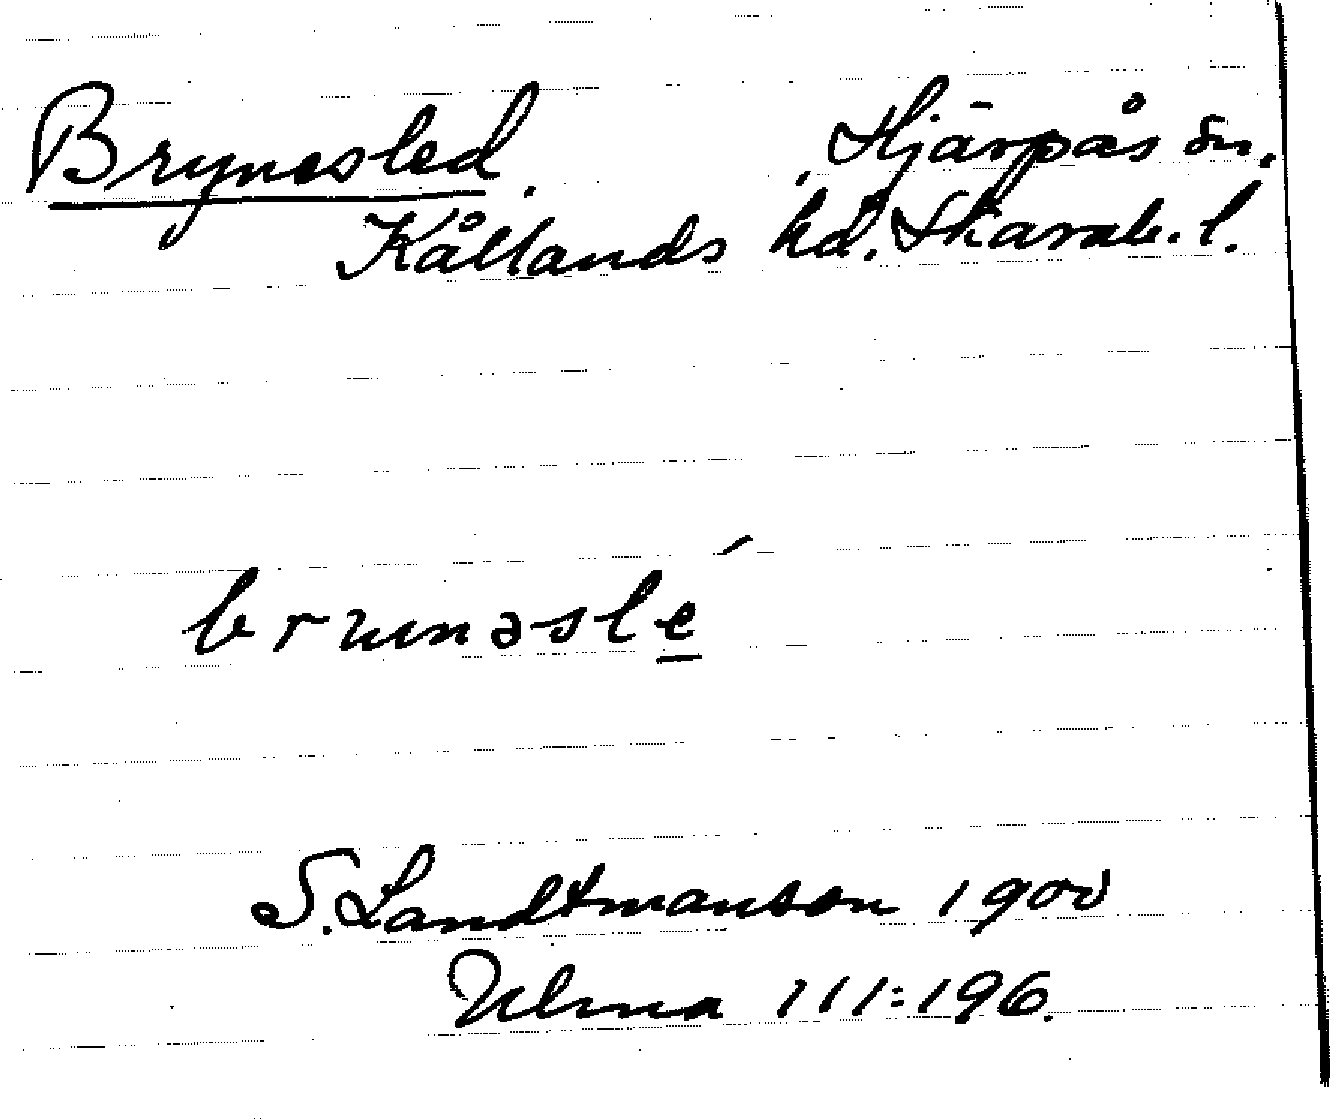 Brynesled. Härpås sn.
Kållands hd. Skarab. l.
S. Landtmanson 1900
Ulma 111:196.